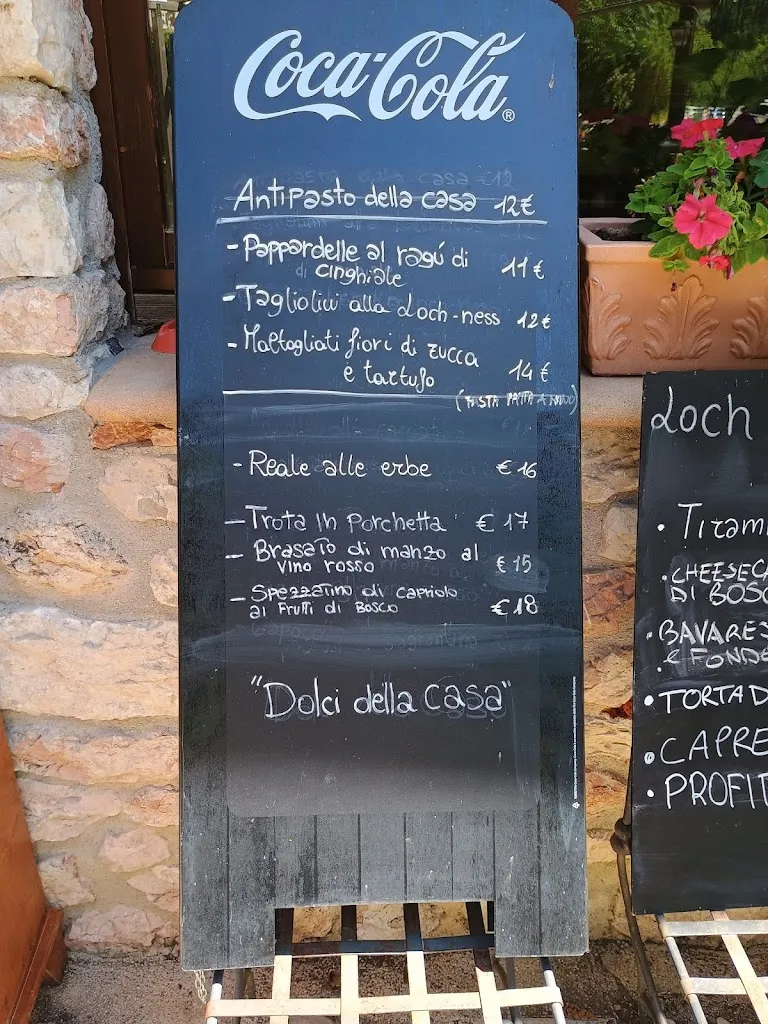 Coca-Cola®
Antipasto della casa 12€
- Pappardelle al ragú di
di cinghiale 11€
- Tagliolini alla Loch-ness 12€
- Maltagliati fiori di zucca
e tartufo 14€
(PASTA FATTA A MANO)
- Reale alle erbe €16
- Trota in Porchetta €17
- Brasato di manzo al
vino rosso €15
- Spezzatino di capriolo
ai Frutti di Bosco €18
"Dolci della casa"
Loch
• Tiram
• CHEESECA
DI BOSC
• BAVARES
e FONDE
• TORTA D
• CAPRE
• PROFIT